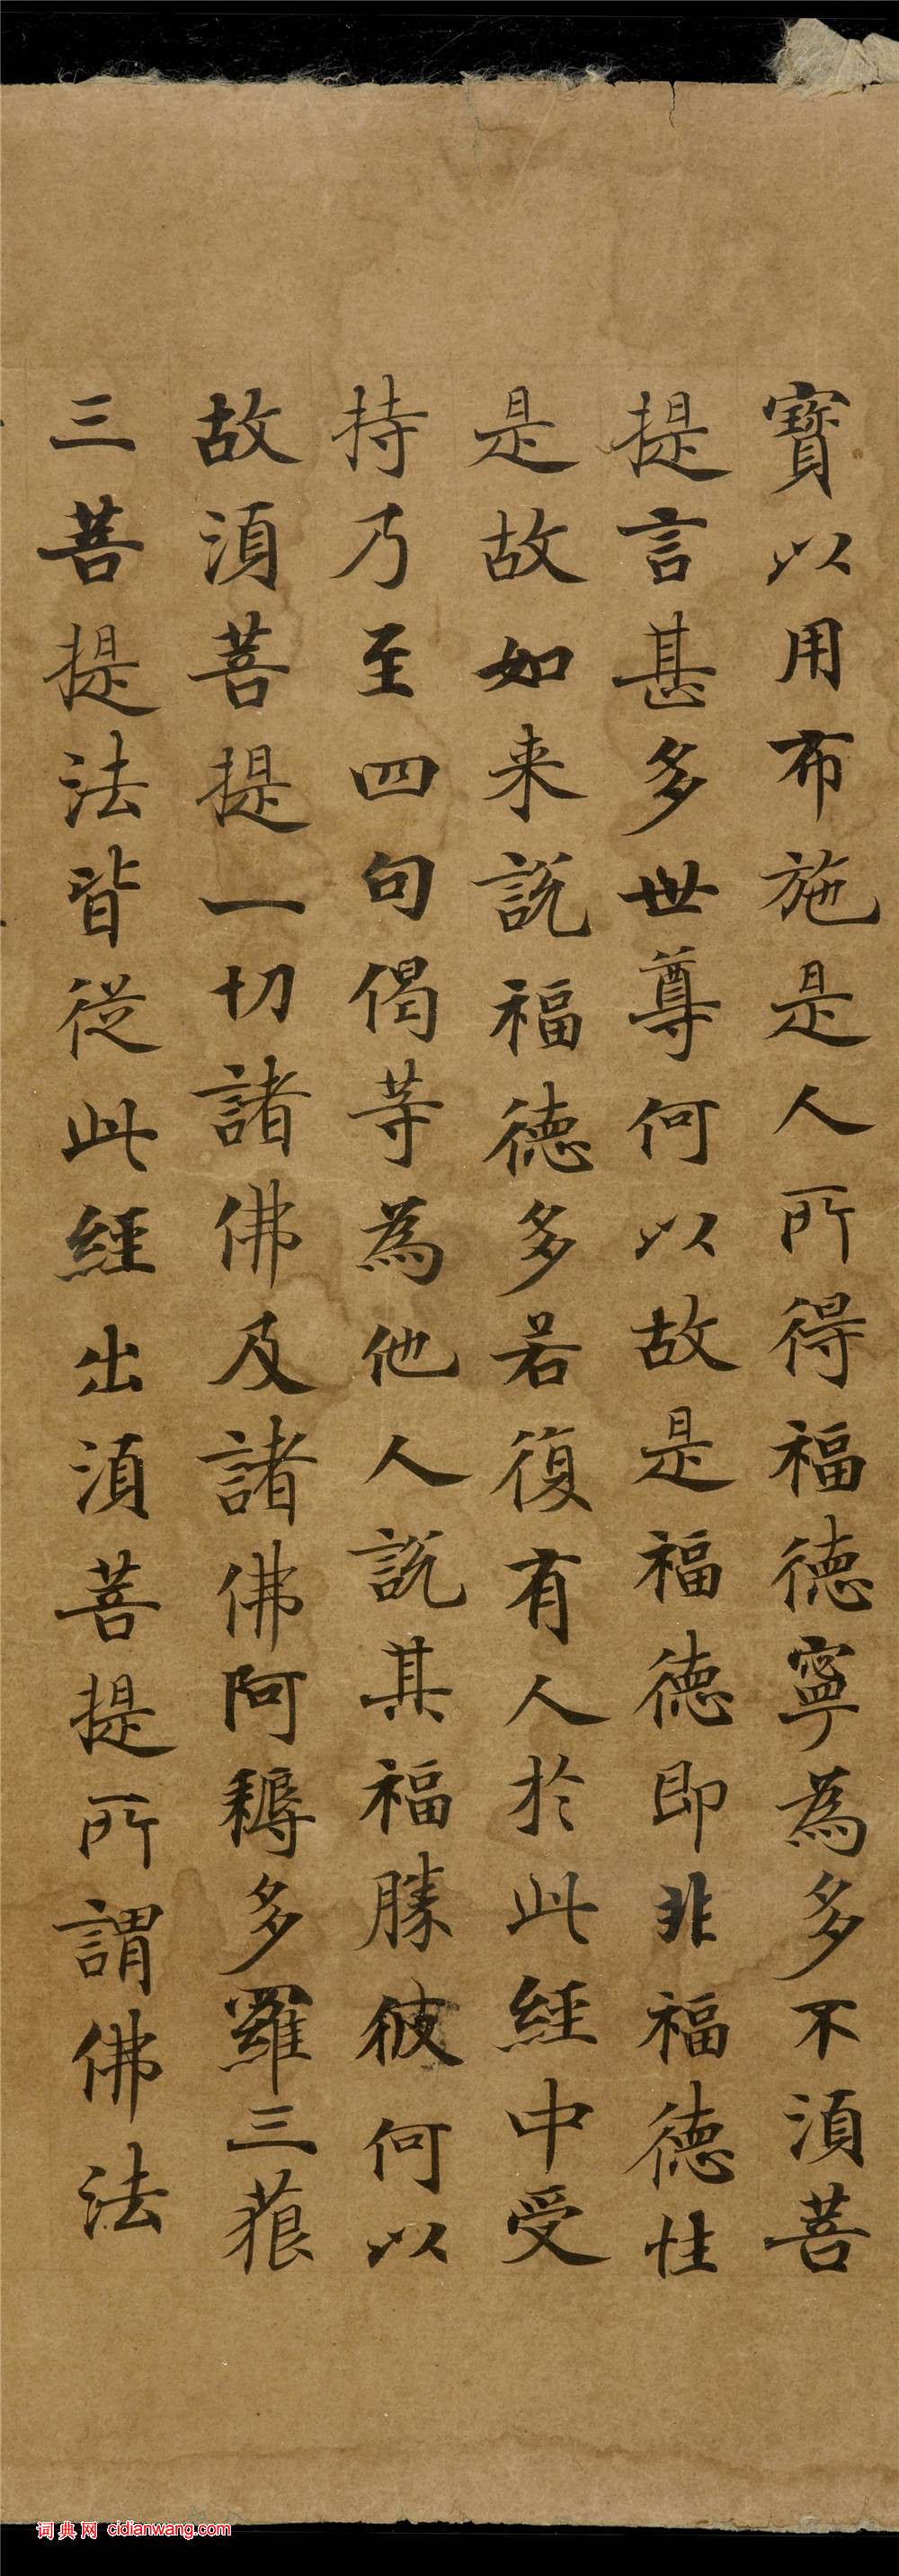 寳以用布施是人所得福德寧為多不湏菩
提言甚多世尊何以故是福德即非福德性
是故如来說福德多若復有人於此經中受
持乃至四句偈等為他人說其福勝彼何以
故湏菩提一切諸佛及諸佛阿耨多羅三藐
三菩提法皆從此經出湏菩提所謂佛法
词典网 cidianwang.com